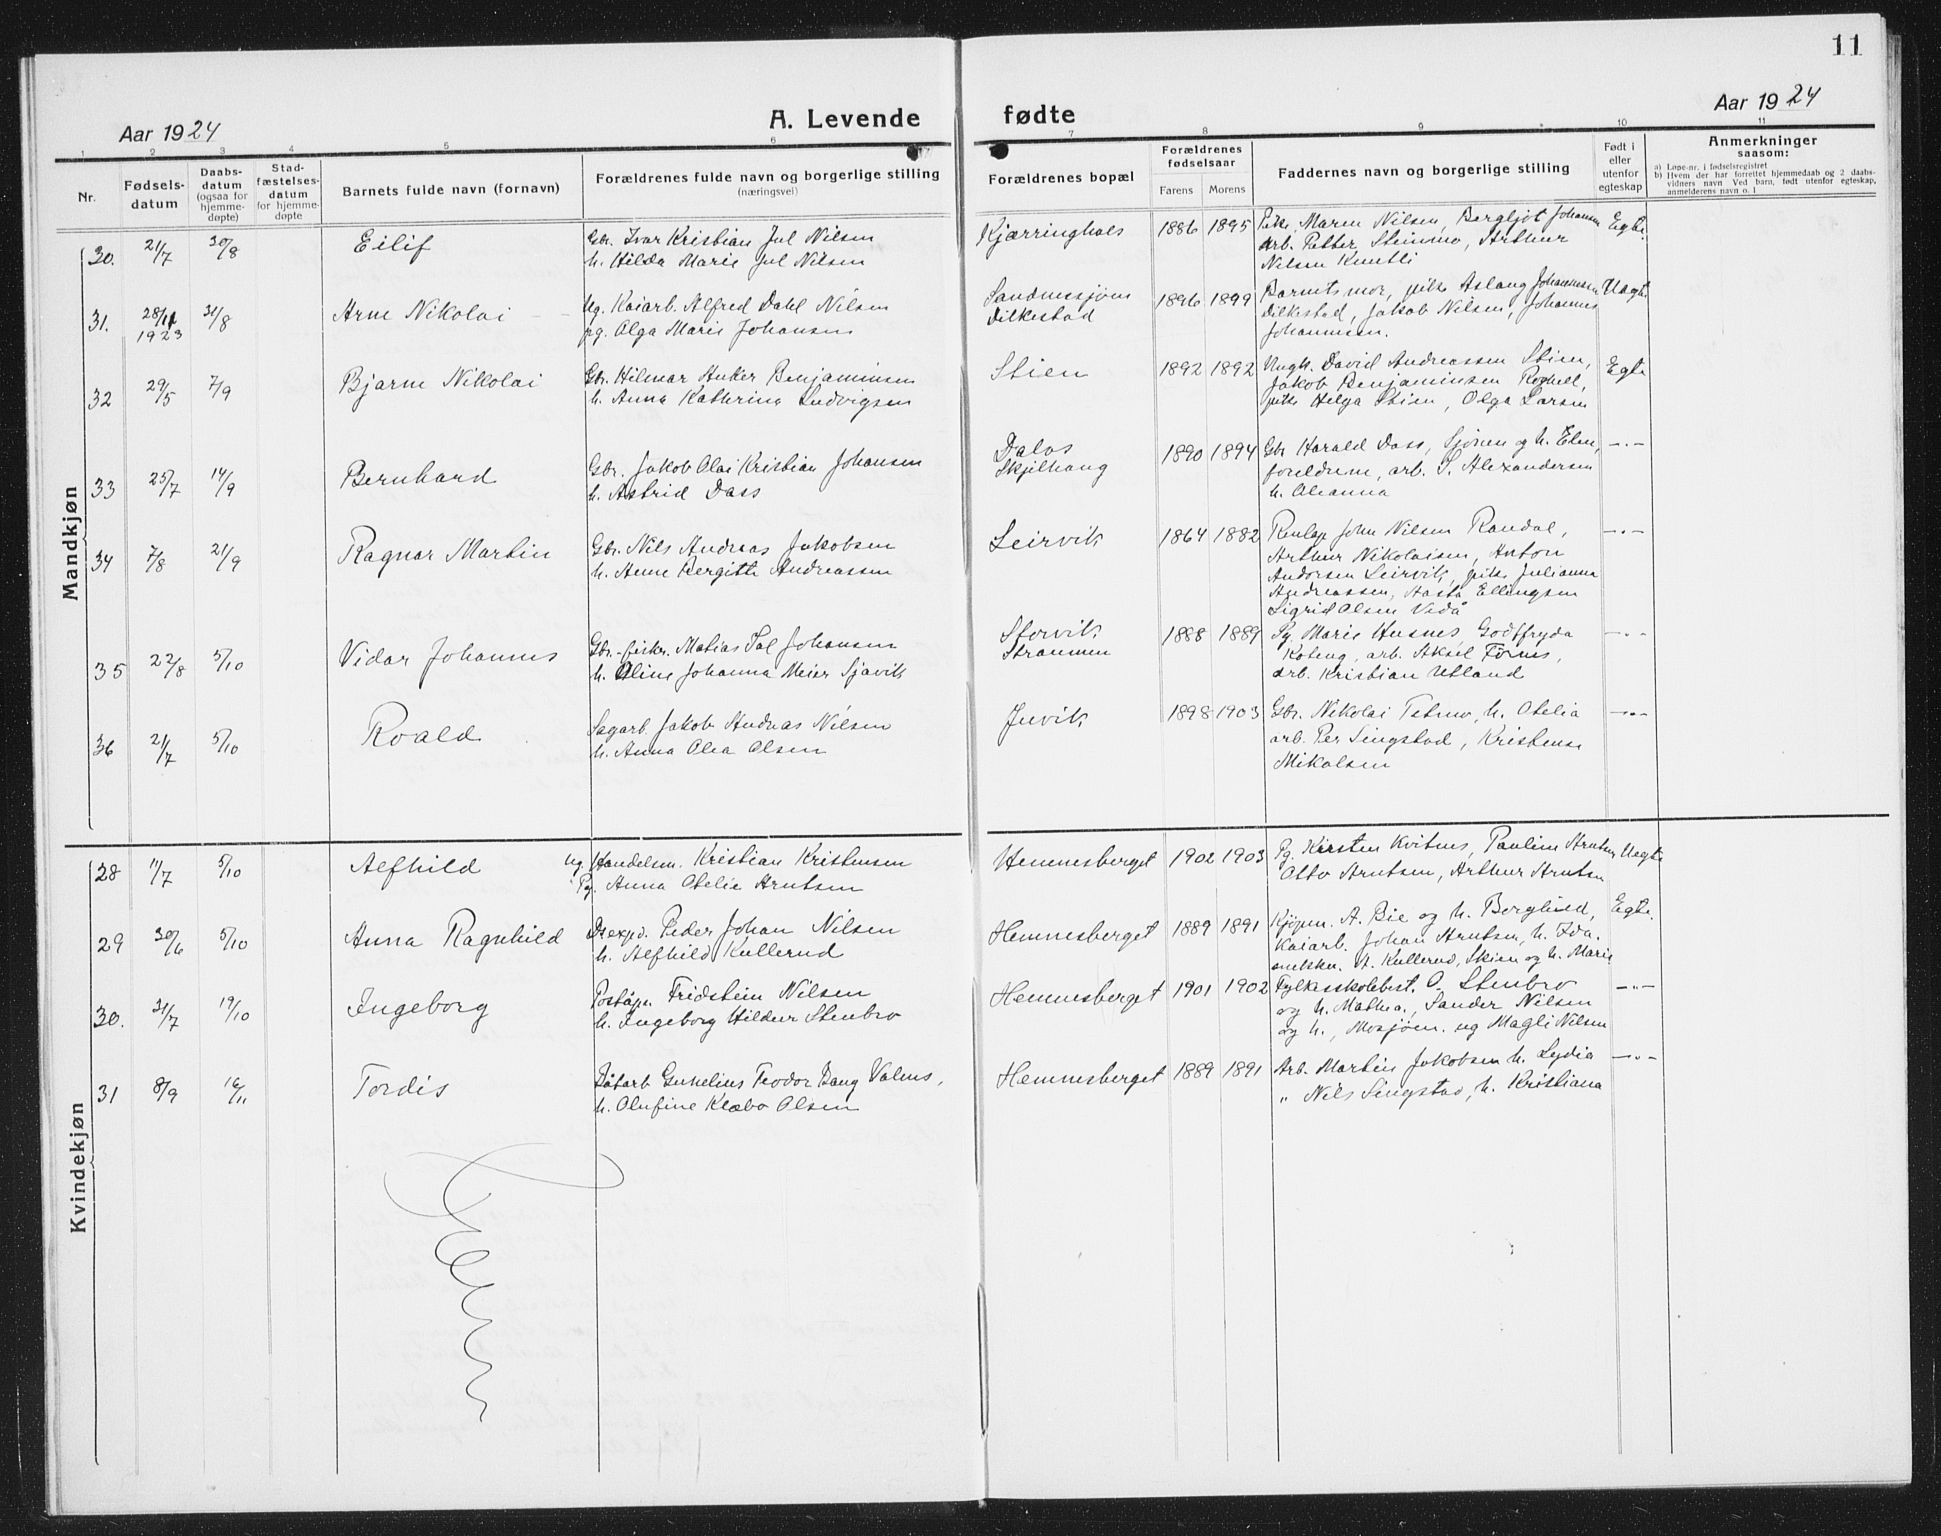 11
Aar 1924
A. Levende fødte
Aar 1924
1 2 3 4 5 6 7 8 9 10 11
Nr.
Fødsels-
datum
Daabs-
datum
(ogsaa for
hjemme-
døpte)
Stad-
fæstelses-
datum
for hjemme-
døpte
Barnets fulde navn (fornavn)
Forældrenes fulde navn og borgerlige stilling
(næringsvei)
Forældrenes bopæl
Forældrenes
fødselsaar
Farens Morens
Faddernes navn og borgerlige stilling
Født i
eller
utenfor
egteskap
Anmerkninger
saasom:
a) Løpe-nr. i fødselsregistret
b) Hvem der har forrettet hjemmedaab og 2 daabs-
vidners navn Ved barn, født utenfor egteskap,
anmelderens navn o. l
Mandkjøn
30. 21/7 30/8 Eilif
Gbr. Ivar Kristian Jul Nilsen
h. Hilda Marie Jul Nilsen
Kjærringhals 1886 1895
Pike Maren Nilsen, Bergljot Johansen
arb. Petter Steinmo, Arthur
Nilsen
Egte.
31. 28/11 1923 31/8 Arne Nikolai
Ug. Kaiarb. Alfred Dahl Nilsen
pg. Olga Marie Johansen
Sandnessjøen
Dilkestad
1896 1899
Barnets mor, pike Aslaug Johannessen
Dilkestad, Jakob Nilsen, Johannes
Johannesen.
Uegte
32 29/5 7/9 Bjarne Nikolai
Gbr. Hilmar Anker Benjaminsen
h. Anna Kathrina Ludvigsen
Stien 1892 1892
Ungk. David Andreassen Stien,
Jakob Benjaminsen
pike Helga Stien, Olga Larsen
Egte
33 25/7 14/9 Bernhard
Gbr. Jakob Olai Kristian Johansen
h. Astrid Dass
Dalos
Skjelhaug
1890 1894
Gbr Harald Dass, Sjønen og h. Elen,
foreldrene, arb. S. Alexandersen
h. Oleanna
—"—
34 7/8 21/9 Ragnar Martin
Gbr. Nils Andreas Jakobsen
h. Anne Bergitte Andreassen
Leirvik 1864 1882
John Nilsen Randal,
Arthur Nikolaisen, Anton
Andersen Leirvik, pike Julianna
Andreassen, Aasta Ellingsen
Sigrid Olsen
—"—
35 22/8 5/10 Vidar Johannes
Gbr.-fisker. Matias Tal Johansen
h. Oline Johanna Meier Sjavik
Storvik
Straumen
1888 1889
Pg. Marie Husnes, Godtfryda
Koteng, arb. Aksel Fornes,
arb. Kristian Utland
—"—
36 21/7 5/10 Roald
Sagarb. Jakob Andreas Nilsen
h. Anna Olea Olsen
Juvik 1898 1903
Gbr. Nikolai Tetmo, h. Otelia
arb. Per Singstad, Kristense
Mikalsen
—"—
Kvindekjøn
28 11/7 5/10 Alfhild
Ug. Handelsm. Kristian Kristensen
Pg. Anna Otelie Arntsen
Hemnesberget 1902 1903
Pg. Kirsten Kvitnes, Pauline Arntsen
Otto Arntsen, Arthur Arntsen
Uegte
29 30/6 5/10 Anna Ragnhild
D.exped. Peder Johan Nilsen
h. Alfhild Kullerud
Hemnesberget 1889 1891
Kjøpm. A. Bie og h. Borghild,
Kaiarb. Johan Arntsen, h. Ida.
A. Kullerud, Skien og h. Marie
Egte.
30. 31/7 19/10 Ingeborg
Postaapn. Fridstein Nilsen
h. Ingeborg Hildur Stenbro
Hemnesberget 1901 1902
Fylkesskolebest. O. Stenbro
og h. Mathea, Sander Nilsen
og h., Mosjøen. ug Magli Nilsen
—"—
31 8/9 16/11 Tordis
Baatarb Gunelius Teodor Bang Valnes,
h. Olufine Klæbo Olsen
Hemnesberget 1889 1891
Arb. Martin Jakobsen h. Lydia
" Nils Singstad, h. Kristiana
—"—